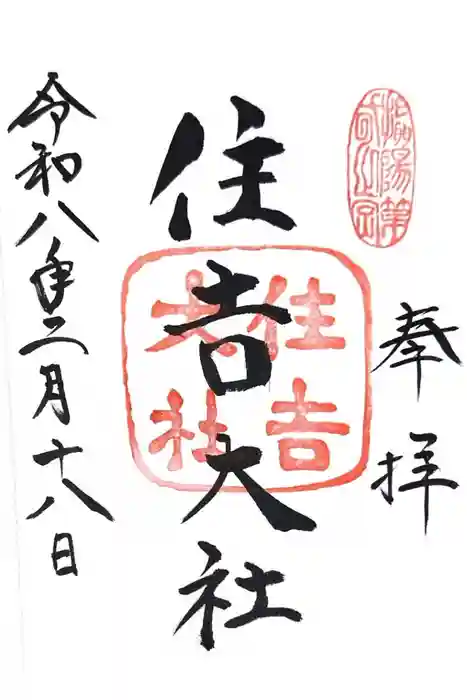 奉拝
住吉大社
住吉
大社
令和八年二月十八日